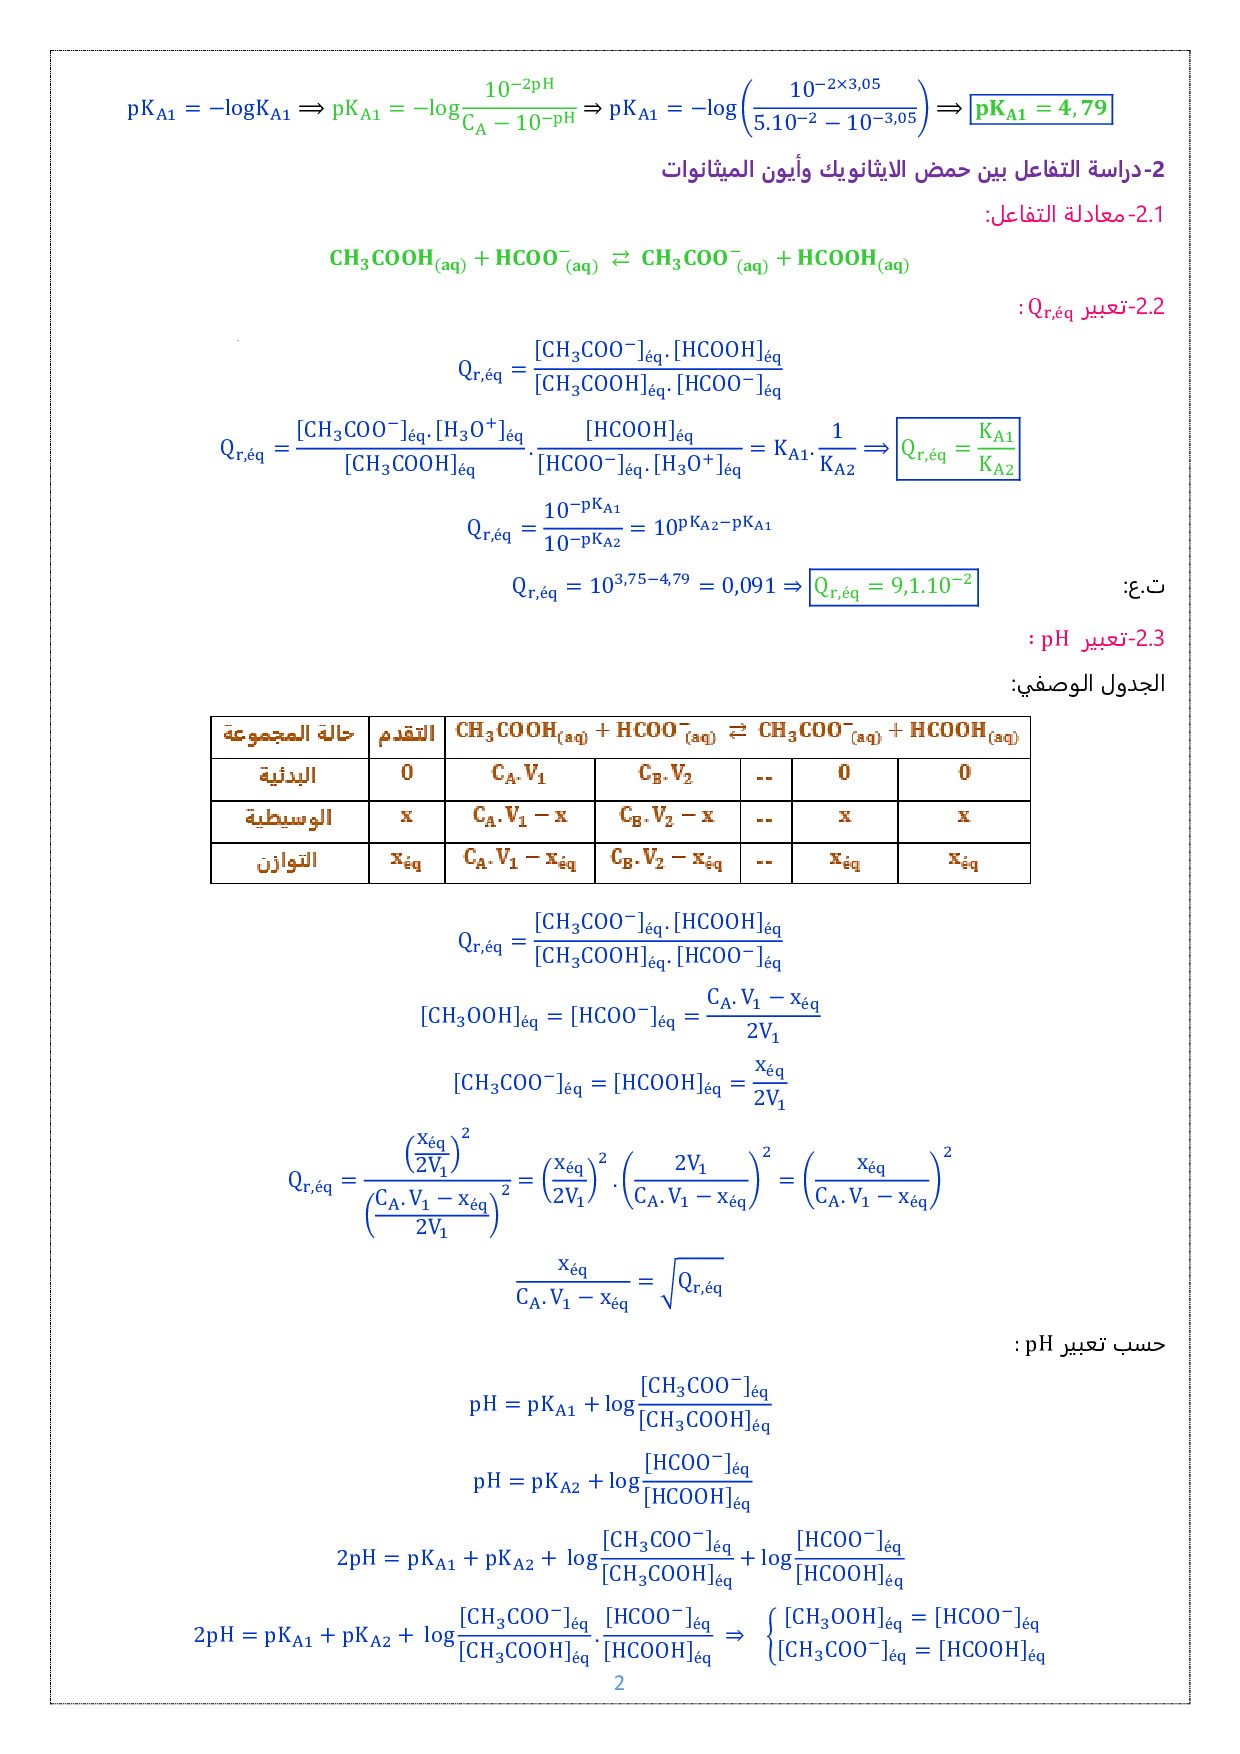 pK_A1 = −logK_A1 ⟹ pK_A1 = −log (10^−2pH)/(C_A − 10^−pH) ⇒ pK_A1 = −log((10^−2×3,05)/(5.10^−2 − 10^−3,05)) ⟹ pK_A1 = 4,79
2-دراسة التفاعل بين حمض الايثانويك وأيون الميثانوات
2.1-معادلة التفاعل:
CH₃COOH(aq) + HCOO⁻(aq) ⇄ CH₃COO⁻(aq) + HCOOH(aq)
2.2-تعبير Q_r,éq :
Q_r,éq = ([CH₃COO⁻]éq. [HCOOH]éq)/([CH₃COOH]éq. [HCOO⁻]éq)
Q_r,éq = ([CH₃COO⁻]éq. [H₃O⁺]éq)/([CH₃COOH]éq) . ([HCOOH]éq)/([HCOO⁻]éq. [H₃O⁺]éq) = K_A1. 1/K_A2 ⟹ Q_r,éq = K_A1/K_A2
Q_r,éq = (10^−pK_A1)/(10^−pK_A2) = 10^(pK_A2−pK_A1)
ت.ع: Q_r,éq = 10^(3,75−4,79) = 0,091 ⇒ Q_r,éq = 9,1.10^−2
2.3-تعبير pH :
الجدول الوصفي:
حالة المجموعة التقدم CH₃COOH(aq) + HCOO⁻(aq) ⇄ CH₃COO⁻(aq) + HCOOH(aq)
البدئية 0 C_A.V₁ C_B.V₂ -- 0 0
الوسيطية x C_A.V₁ − x C_B.V₂ − x -- x x
التوازن x_éq C_A.V₁ − x_éq C_B.V₂ − x_éq -- x_éq x_éq
Q_r,éq = ([CH₃COO⁻]éq. [HCOOH]éq)/([CH₃COOH]éq. [HCOO⁻]éq)
[CH₃OOH]éq = [HCOO⁻]éq = (C_A. V₁ − x_éq)/(2V₁)
[CH₃COO⁻]éq = [HCOOH]éq = x_éq/(2V₁)
Q_r,éq = (x_éq/2V₁)²/((C_A. V₁ − x_éq)/2V₁)² = (x_éq/2V₁)² . (2V₁/(C_A. V₁ − x_éq))² = (x_éq/(C_A. V₁ − x_éq))²
x_éq/(C_A. V₁ − x_éq) = √(Q_r,éq)
حسب تعبير pH :
pH = pK_A1 + log ([CH₃COO⁻]éq)/([CH₃COOH]éq)
pH = pK_A2 + log ([HCOO⁻]éq)/([HCOOH]éq)
2pH = pK_A1 + pK_A2 + log ([CH₃COO⁻]éq)/([CH₃COOH]éq) + log ([HCOO⁻]éq)/([HCOOH]éq)
2pH = pK_A1 + pK_A2 + log ([CH₃COO⁻]éq)/([CH₃COOH]éq) . ([HCOO⁻]éq)/([HCOOH]éq) ⇒ { [CH₃OOH]éq = [HCOO⁻]éq
[CH₃COO⁻]éq = [HCOOH]éq
2